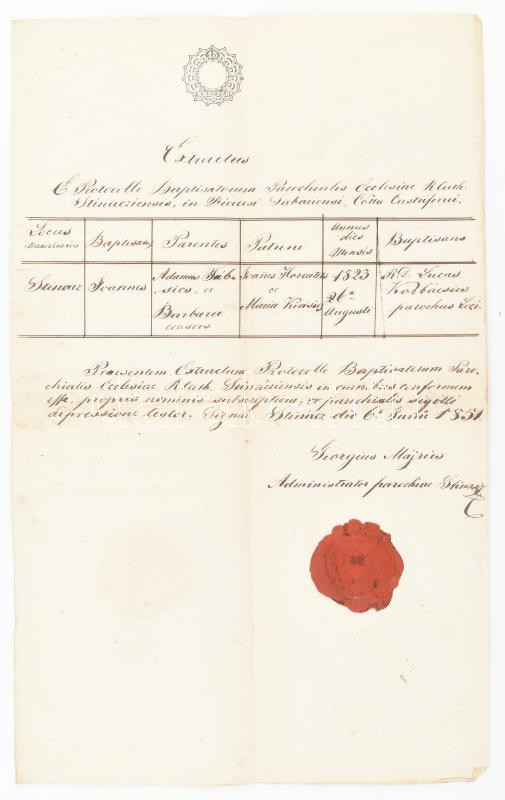 Extractus
E Protocollo Baptisatorum Parochialis Ecclesiae R. Cath.
Stinacziensis, in Diecesi Sabariensi, Cottu Castriferrei.
Locus
Baptisatus
Parentes
Patrini
Annus
dies
Mensis
Baptisans
Stinacz
Joannes
Adamus
sics. et
Barbara
consors
Joanes Horvatits
et
Maria
1823
26a
Augusti
R. D. Lucas
parochus Loci
Praesentem Extractum Protocollo Baptisatorum Paro-
chialis Ecclesiae R. Cath. Stinacziensis in omnibus conformem
esse, propria nominis subscriptione, et parochialis sigilli
depressione testor. Signat. Stinacz die 6a Junii 1851.
Georgius Majrics
Administrator parochiae Stinacz